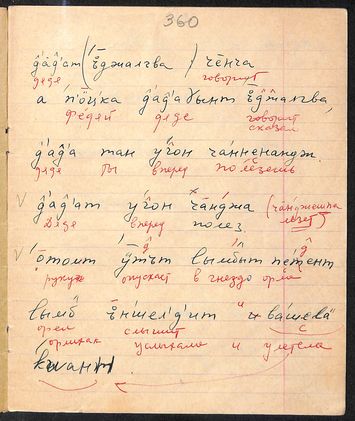 360
д̂а́д̂ат (ъ̊джалгва) че́нча
деде говорит
а п'о́ц̌ка д̂ад̂а ъ̊д̂жалгва,
Федей деде говорит сказал
д̂а́д̂а тан у́гон ча́нненандж.
деде Ты вперед полезешь
V д̂а́д̂ат у́гон ча́нджа (ча́нджешпа
Деде вперед полез лезет)
V о́томт у́тчт лымбыт пе́тент
руку опускает в гнездо орла
лымб̂ ъ̊ншелд̂ит и ва́шева"
орел слышит с
орлихак услыхала и улетела
квант